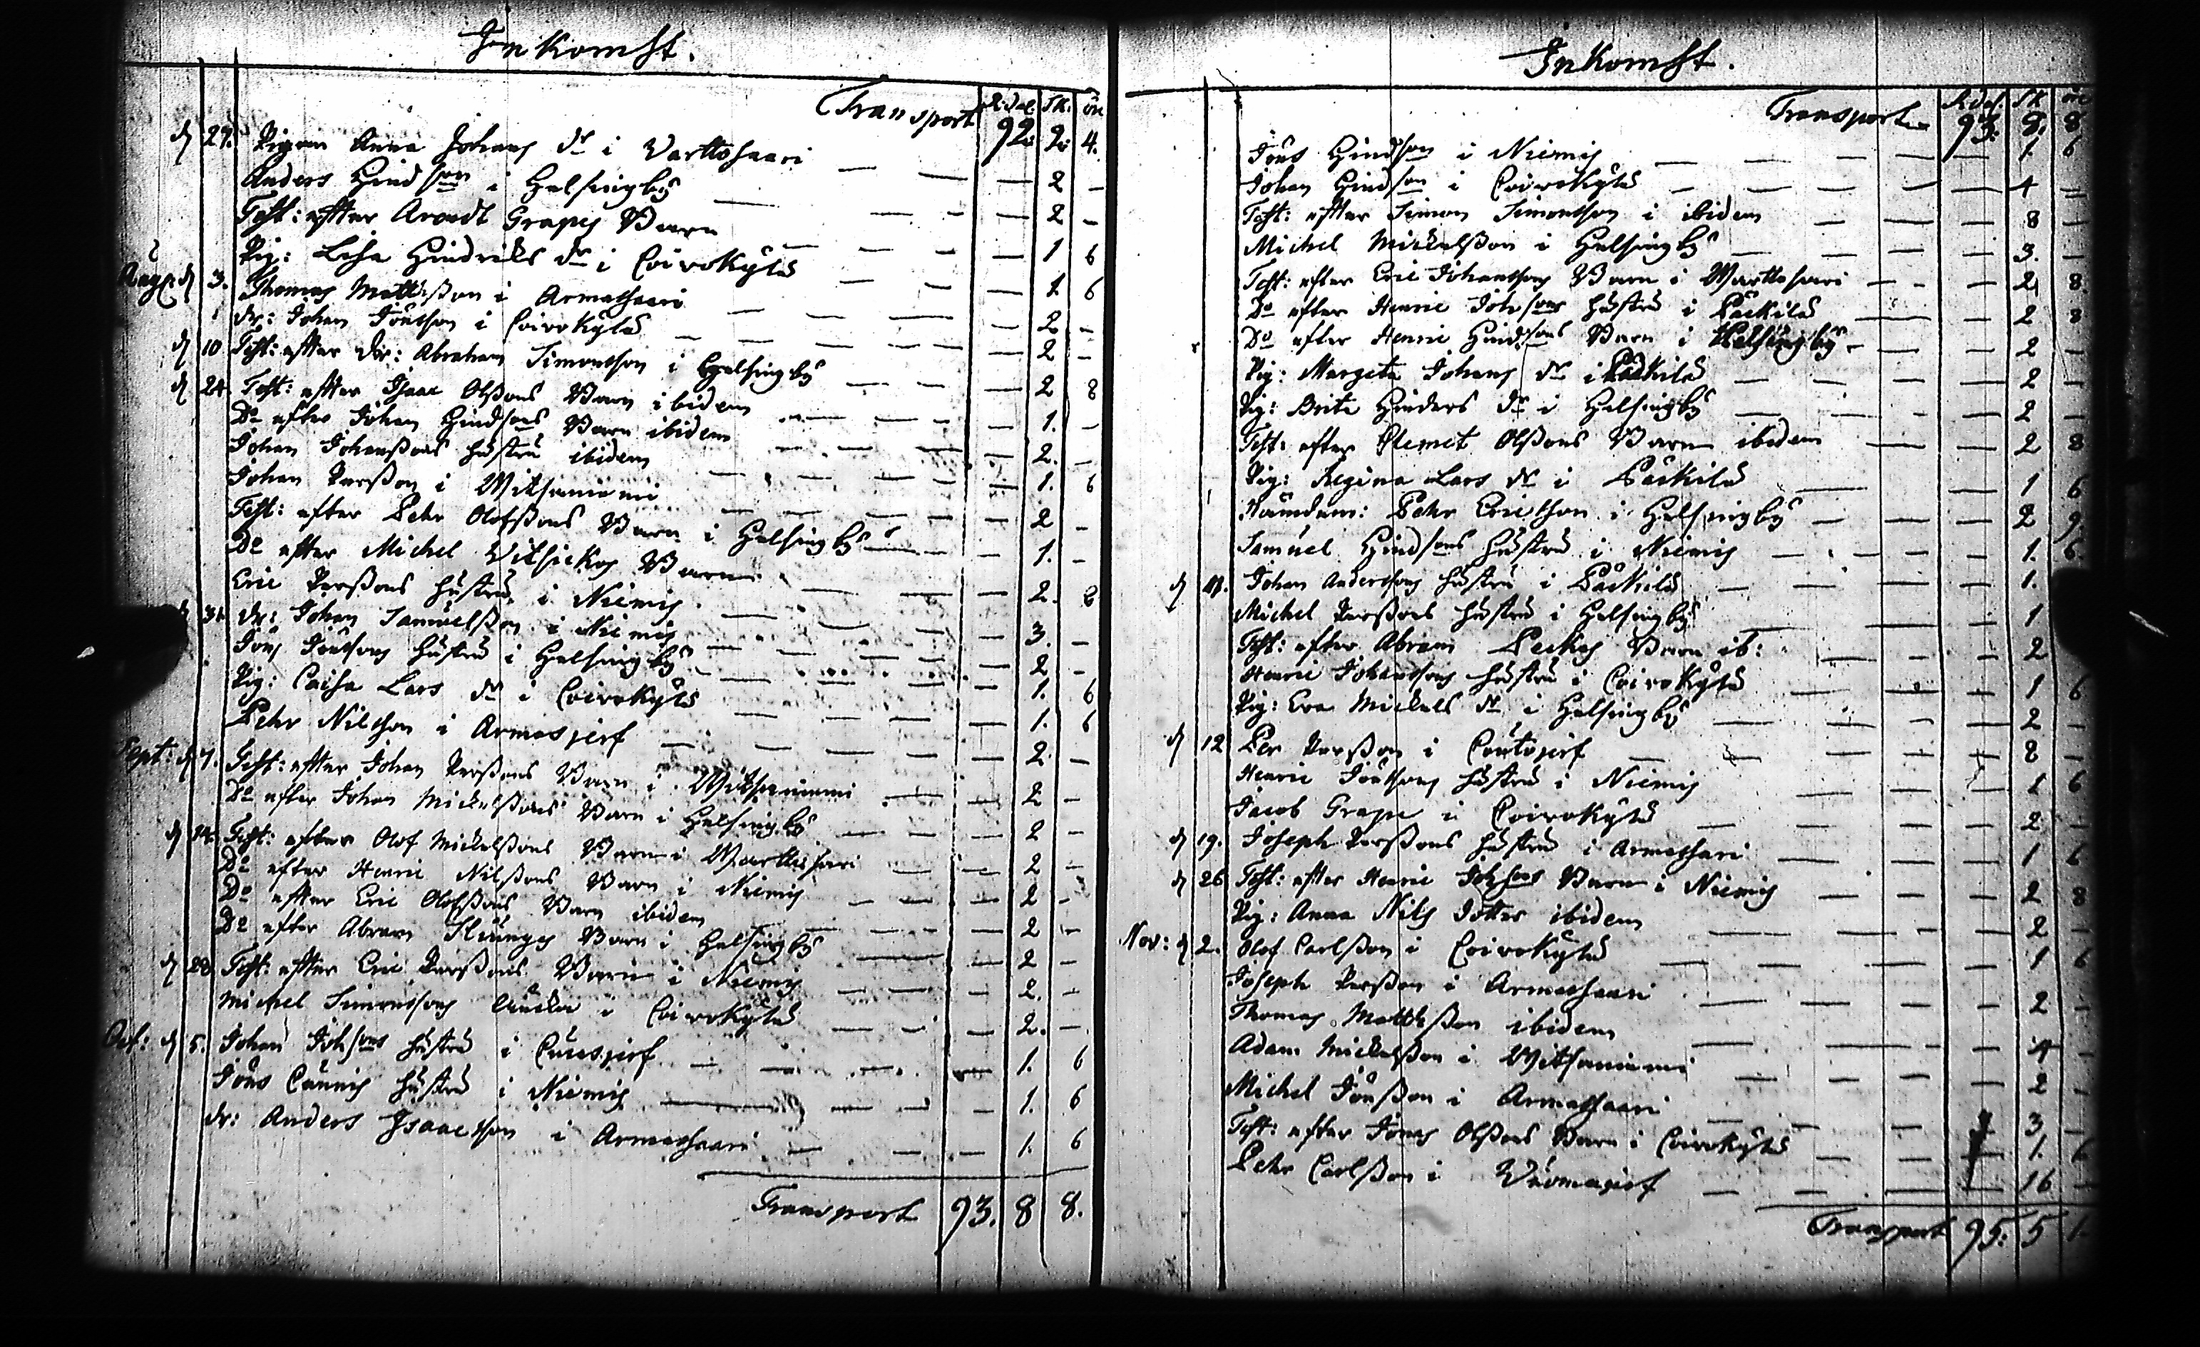 Inkomst.
Transport R:dal. sk: ör
92. 2. 4.
d 27. Pigan Anna Johans dr i Varttosaari — 2 —
Anders Hindson i Helsingby — 2 —
Test: efter Arendt Grapes Barn — 1 6
Pig: Lisa Hindriks dr i Coivokylä — 1 6
Aug: d 3. Thomas Mattsson i Armassaari — 2 —
dr: Johan Jönsson i Coivokylä — 2 —
d 10 Test: efter dr: Abraham Simonsson i Helsingby — 2 8
d 24. Test: efter Isaac Olssons Barn ibidem — 1. —
Do efter Johan Hindsons Barn ibidem — 2. —
Johan Johanssons hustru ibidem — 1. 6
Johan Persson i Witsaniemi — 2 —
Test: efter Pehr Olofssons Barn i Helsingby — 1. —
Do efter Michel Vitsickos Barn — 2. 8
Eric Perssons hustru i Niemis — 3. —
d 31 dr: Johan Samuelsson i Niemis — 2 —
Jöns Jönssons hustru i Helsingby — 1. 6
Pig: Caisa Lars dr i Coivokylä — 1. 6
Pehr Nilsson i Armasjerf — 2. —
Sept: d 7. Test: efter Johan Perssons Barn i Witsaniemi — 2 —
Do efter Johan Mickelssons Barn i Helsingby — 2 —
d 14. Test: efter Olof Mickelssons Barn i Warttosari — 2 —
Do efter Henric Nilssons Barn i Niemis — 2 —
Do efter Eric Olofssons Barn ibidem — 2 —
Do efter Abram Barn i Helsingby — 2 —
d 28 Test: efter Eric Perssons Barn i Niemis — 2. —
Michel Simonssons Enckia i Coivokylä — 2. —
Oct: d 5. Johan Johsons hustru i Cuusjerf — 1. 6
Jöns Cunnis hustru i Niemis — 1. 6
dr: Anders Isaacsson i Armassaari — 1. 6
Transport 93. 8 8.
Inkomst.
Transport R:dal. sk ör
93. 8. 8
Jöns Hindson i Niemis — 1. 6
Johan Hindson i Coivokylä — 4 —
Test: efter Simon Simonsson i ibidem — 8 —
Michel Mickelsson i Helsingby — 3. —
Test: efter Eric Johanssons Barn i Warttosari — 2 8
Do efter Henric Johsons hustru i Päckilä — 2 8
Do efter Henric Hindsons Barn i Helsingby — 2 —
Pig: Margeta Johans dr i Päckilä — 2 —
Pig: Brita Hinders dr i Helsingby — 2 —
Test: efter Clemet Olssons Barn ibidem — 2 8
Pig: Regina Lars dr i Päckilä — 1 6
Nämdem: Pehr Ericsson i Helsingby — 2 9
Samuel Hindsons hustru i Niemis — 1. 6
d Johan Anderssons hustru i Päckilä — 1. —
Michel Perssons hustru i Helsingby — 1
Test: efter Abram Peckos Barn ib: — 2
Henric Johanssons hustru i Coivokylä — 1 6
Pig: Eva Mickels dr i Helsingby — 2 —
d 12 Per Persson i Coutojerf — 8 —
Henric Jönssons hustru i Niemis — 1 6
Jacob Grape i Coivokylä — 2 —
d 19. Joseph Perssons hustru i Armassari — 1 6
d 26 Test: efter Henric Johsons Barn i Niemis — 2 8
Pig: Anna Nils dotter ibidem — 2 —
Nov: d 2. Olof Carlsson i Coivokylä — 1 6
Joseph Persson i Armassaari — 2 —
Thomas Mattsson ibidem — 4 —
Adam Mickelsson i Witsaniemi — 2 —
Michel Jönsson i Armassaari — 3 —
Test: efter Jöns Olssons Barn i Coivokylä — 1. 6
Pehr Carlsson i Vuomajerf — 16 —
Transport 95. 5 1.